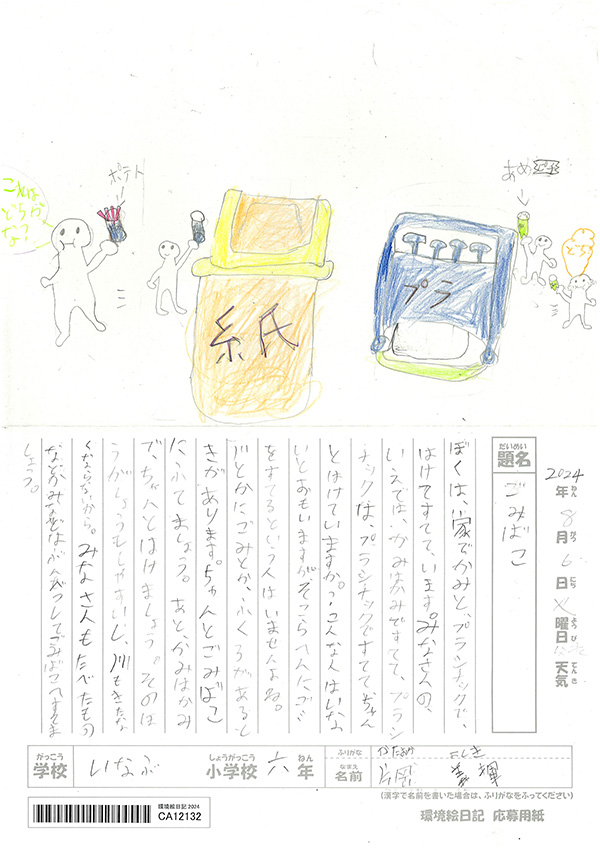 ポテト
あめ
これは
どっちか
な？
どっち
紙
プラ
2024年ねん8月がつ6日にち火曜日ようび 天気てんき
だいめい
題名
ごみばこ
ぼくは、家でかみと、プラシチックで、
はけてすてて、います。みなさんの、
いえでは、かみはかみですてて、プラシ
チックは、プラシチックですててちゃん
とはけていますか。こんな人はいな
いとおもいますが、そこらへんにごミ
をすてるという人はいませんよね。
川とかにごみとか、ふくろがあると
きがあります。ちゃんとごみばこ
にふてましょう。あと、かみはかみ
で、ちゃんとはけましょう。そのほ
うがしょうもしゃすいし、川もきたな
くならないから。みなさんもたべたもの
などかみなどはぶんべつしてごみばこへすてま
しょう。
がっこう
学校
いなぶ
しょうがっこう
小学校
六
ねん
年
ふりがな
かたおか よしき
なまえ
名前
片岡
輝
(漢字で名前を書いた場合は、ふりがなをふってください)
環境絵日記 2024
CA12132
環境絵日記 応募用紙